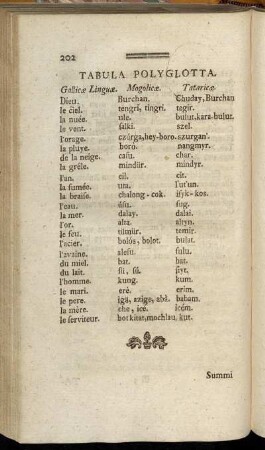 202
TABULA POLYGLOTTA.
Gallicæ Linguæ. Mogolicæ. Tataricæ.
Dieu. Burchan. Chuday, Burchan
le ciel. tengri, tingri. tegir.
la nuée. ule. bulut. kara-bulut.
le vent. salki. szel.
l'orage. czúrga, hey-boro. szurgan'.
la pluye. boro. nangmyr.
de la neige. casu. char.
la grêle. mindür. mindyr.
l'an. cil. cit.
la fumée. uta. tut'un.
la braise. chalong-cok. isyk-kos.
l'eau. usu. su.
la mer. dalay. dalai.
l'or. alta. altyn.
le feu. tilmür. temir.
l'acier. bolós, bolot. bulut.
l'avaine. alesu. sulu.
du miel. bat. bat.
du lait. sü, sü. syt.
l'homme. kung. kum.
le mari. eré. erim.
le pere. iga, azige, abl. babam.
la mère. ehe, ice. icém.
le serviteur. botkitat, mochlau. kut.
Summi